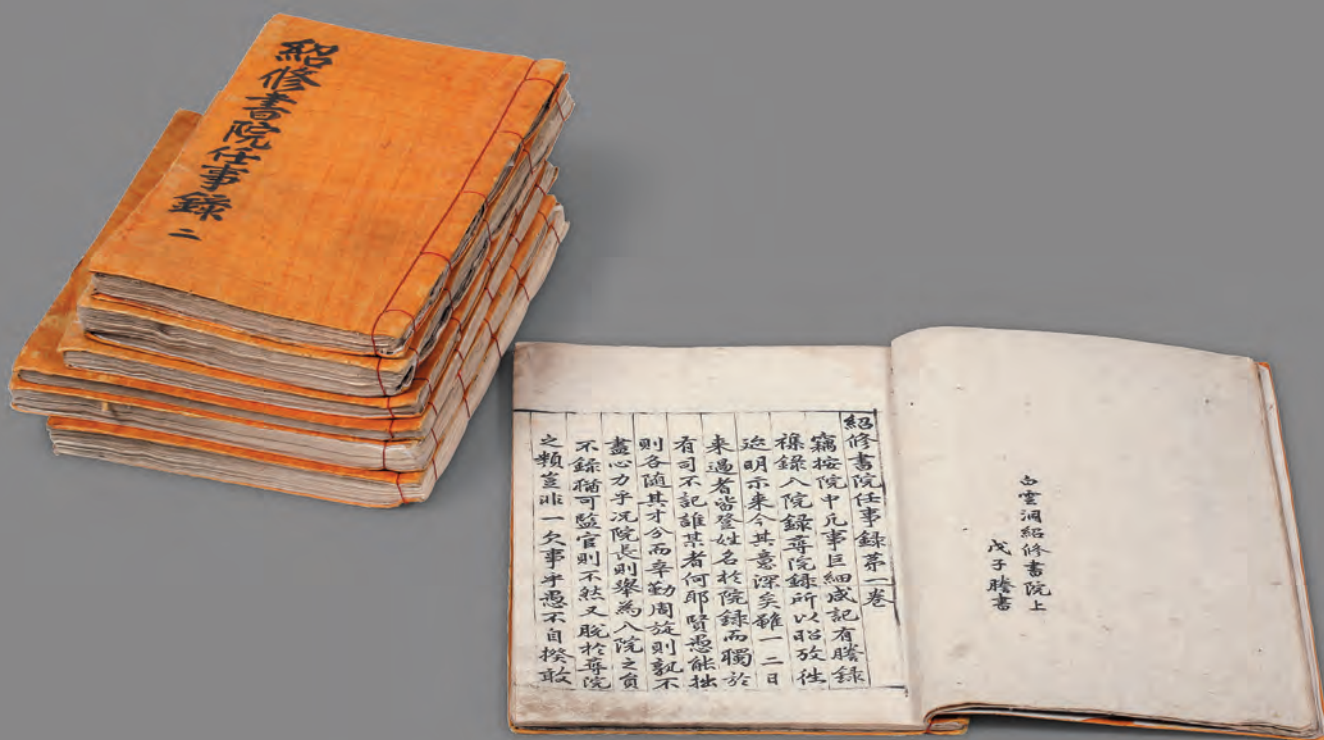 紹修書院任事録 二
白雲洞紹修書院上
戊子謄書
紹修書院任事録第一卷
竊按院中凡事巨細咸記有謄録
襍錄入院錄尋院錄所以昭攷徃
迹明示来今其意深矣雖一二日
来過者皆登姓名於院録而獨於
有司不記誰某者何耶賢愚能拙
則各随其才分而辛勤周旋則孰不
盡心力乎况院長則舉為入院之員
不錄猶可監官則不然又脫於尋院
之類豈非一欠事乎愚不自揆敢